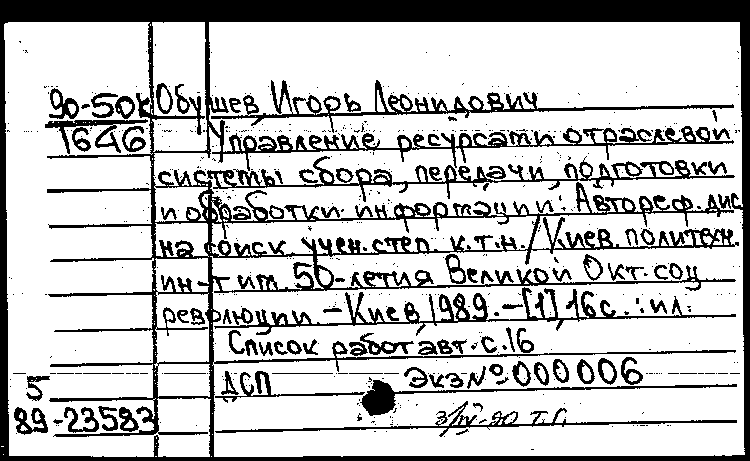 90-50к Обушев Игорь Леонидович
1646 Управление ресурсами отраслевой
системы сбора, передачи, подготовки
и обработки информации: Автореф. дис.
на соиск. учен. степ. к.т.н. / Киев. политехн.
ин-т им. 50-летия Великой Окт. соц.
революции. - Киев, 1989. - [1], 16 с. : ил.
Список работ авт. с. 16
5 ДСП Экз № 000006
89-23583 3/IV-90 т.г.